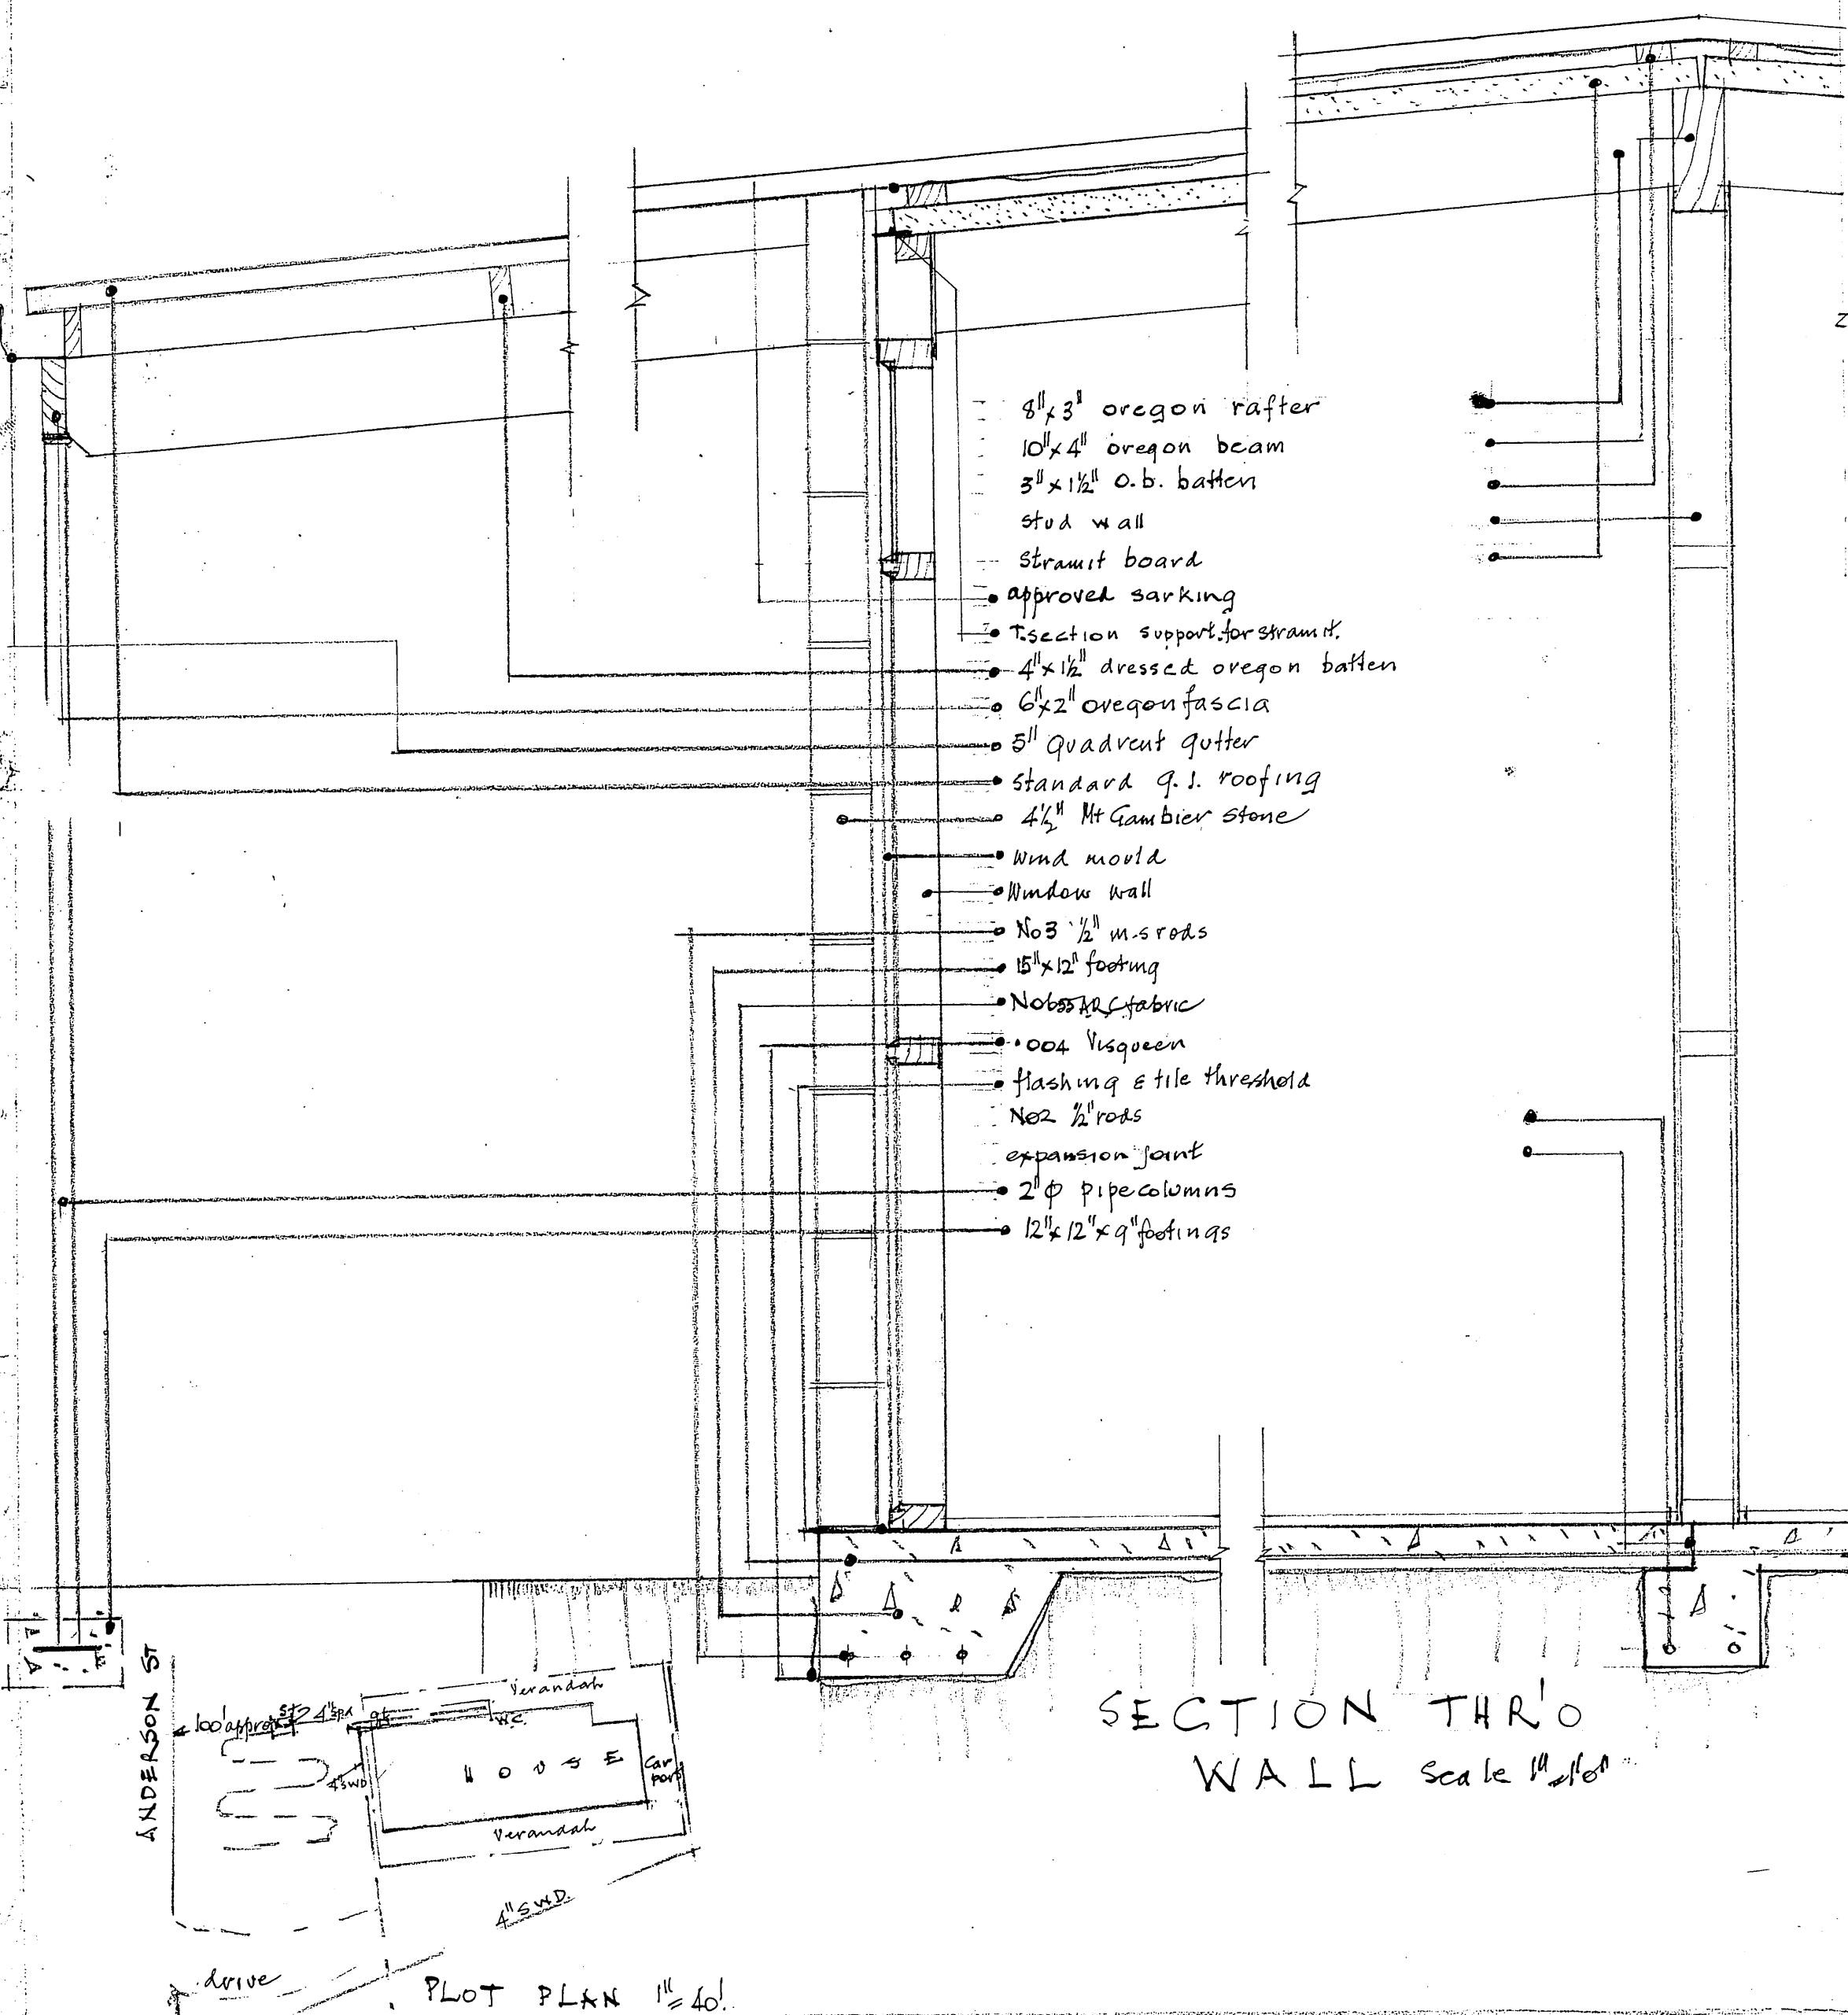 8"x3" oregon rafter
10"x4" oregon beam
3"x1½" O.b. batten
stud wall
Stramit board
approved sarking
T.section support.for stramit.
4"x1½" dressed oregon batten
6"x2" oregon fascia
5" Quadrent gutter
standard g.I. roofing
4½" Mt Gambier Stone
Wind mould
Window wall
No3 ½" m.s rods
15"x12" footing
No655 ARC fabric
.004 Visqueen
flashing & tile threshold
No2 ½" rods
expansion joint
2"φ pipe columns
12"x12"x9" footings
SECTION THR'O
WALL Scale 1"=1'0"
ANDERSON ST
100' approx
Verandah
W.C.
4"SWD
HOUSE
Car
port
Verandah
4"SWD.
drive
PLOT PLAN 1"=40'.